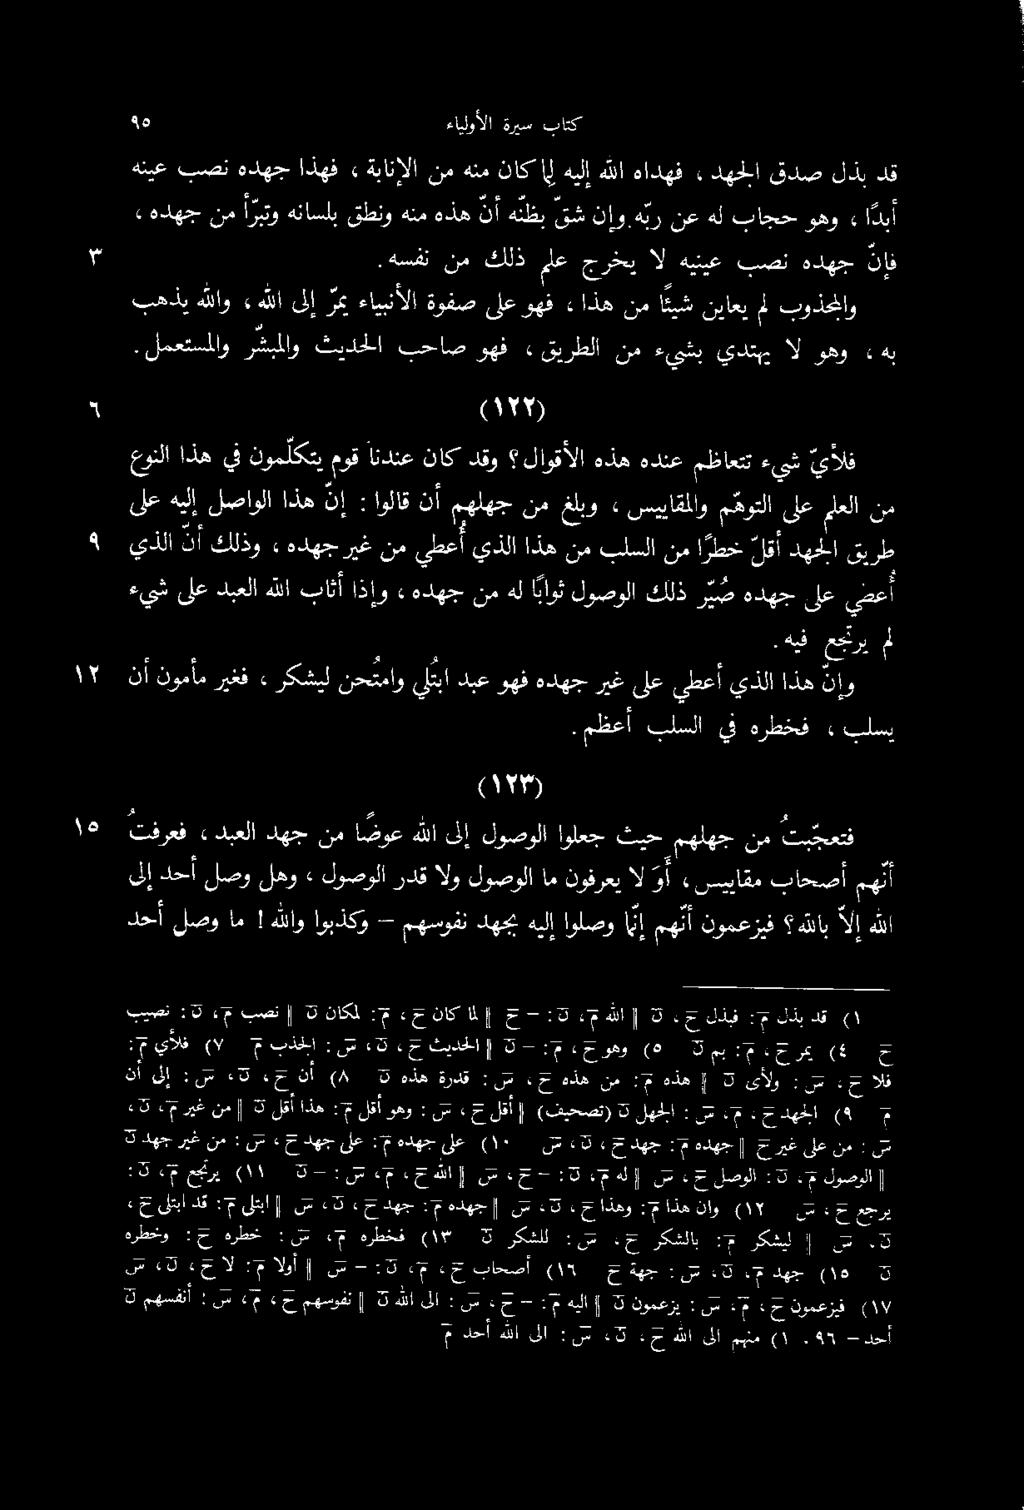 كتاب سيرة الأولياء ٩٥
قد بذل صدق الجهد ، فهداه الله إليه لما كان منه من الإنابة ، فهذا جهده نصب عينيه
أبداً ، وهو حجاب له عن ربّه. وإن شقّ بظنّه أنّ هذه منه ونطق بلسانه وتبرّأ من جهده ،
فإنّ جهده نصب عينيه لا يخرج علم ذلك من نفسه. ٣
والمجذوب لم يعاين شيئاً من هذا ، فهو على صفوة الأنبياء يمرّ إلى الله ، والله يذهب
به ، وهو لا يهتدي بشيء من الطريق ، فهو صاحب الحديث والمبشّر والمستعمل.
(١٢٢) ٦
فلأيّ شيء تتعاظم عنده هذه الأقوال؟ وقد كان عندنا قوم يتكلّمون في هذا النوع
من العلم على التوهّم والمقاييس ، وبلغ من جهلهم أن قالوا : إنّ هذا الواصل إليه على
طريق الجهد أقلّ خطراً من السلب من هذا الذي أُعطي من غير جهده ، وذلك أنّ الذي ٩
أُعضي على جهده صُيّر ذلك الوصول ثواباً له من جهده ، وإذا أثاب الله العبد على شيء
لم يرتجع فيه.
وإنّ هذا الذي أعطي على غير جهده فهو عبد ابتُلي وامتُحن ليشكر ، فغير مأمون أن ١٢
يسلب ، فخطره في السلب أعظم.
(١٢٣)
فتعجّبتُ من جهلهم حيث جعلوا الوصول إلى الله عوضاً من جهد العبد ، فعرفتُ ١٥
أنّهم أصحاب مقاييس ، أَوَ لا يعرفون ما الوصول ولا قدر الوصول ، وهل وصل أحد إلى
الله إلاّ بالله؟ فيزعمون أنّهم إنّما وصلوا إليه بجهد نفوسهم – وكذبوا والله! ما وصل أحد
١) قد بذل م: فبذل ح، ن || الله م، ن: – ح || لما كان ح، م: لمكان ن || نصب م، ن: نصيب
ح ٤) يمر ح، م: بم ن ٥) وهو ح، م: – ن || الحديث ح، ن، س: الجذب م ٧) فلأي م:
فلا ح، س: ولأى ن || هذه م: من هذه ح، س: قدرة هذه ن ٨) أن ح، ن، س: إلى أن
م ٩) الجهد ح، م، س: الجهل ن (تصحيف) || أقل ح، س: وهو أقل م: هذا أقل ن || من غير م، ن،
س: من على غير ح || جهده م: جهد ح، ن، س ١٠) على جهده م: على جهد ح، س: من غير جهد ن
|| الوصول م، ن: الوصل ح، س || له م، ن: – ح، س || الله ح، م، س: – ن ١١) يرتجع م، ن:
يرجع ح، س ١٢) وان هذا م: وهذا ح، ن، س || جهده م: جهد ح، ن، س || ابتلى م: قد ابتلى ح،
ن، س || ليشكر م: بالشكر ح، س: للشكر ن ١٣) فخطره م، س: خطره ح: وخطره
ن ١٥) جهد م، ن، س: جهة ح ١٦) أصحاب ح، م، ن: – س || أولا م: لا ح، ن، س
١٧) فيزعمون ح، م، س: يزعمون ن || اليه م: – ح، س: الى الله ن || نفوسهم ح، م، س: أنفسهم ن
أحد – ٩٦. ١) منهم الى الله ح، ن، س: الى الله أحد م